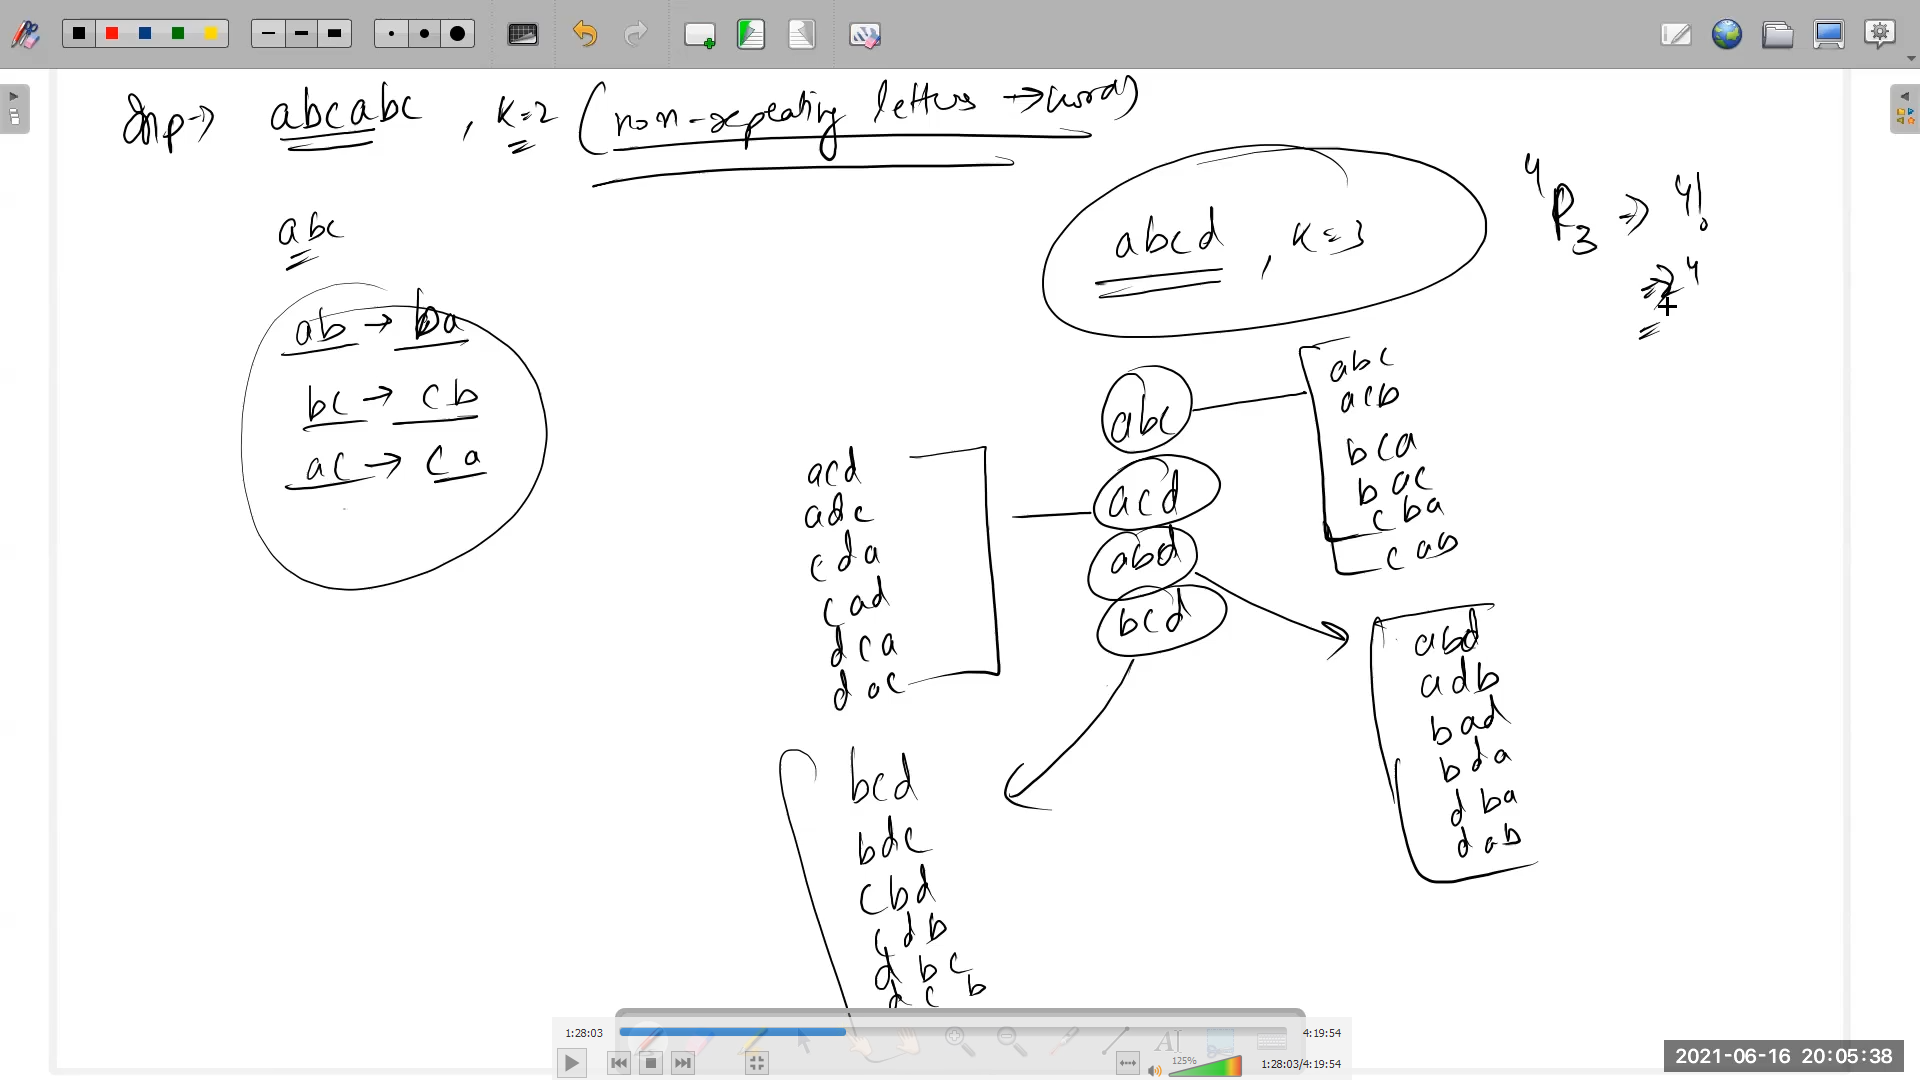 Inp → abcabc , K=2 (non-repeating letters → words)
abc
ab → ba
bc → cb
ac → ca
abcd , K=3
4P3 ⇒ 4!
⇒ 24
abc
acd
abd
bcd
abc
acb
bca
bac
cba
cab
acd
adc
cda
cad
dca
dac
abd
adb
bad
bda
dba
dab
bcd
bdc
cbd
cdb
dbc
dcb
1:28:03
4:19:54
125%
1:28:03/4:19:54
2021-06-16 20:05:38